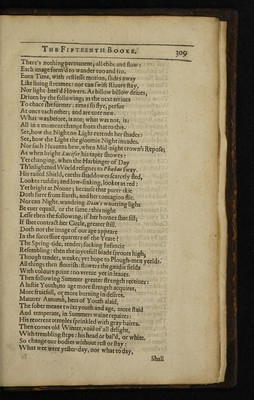 THE FIFTEENTH BOOKE. 309
There's nothing permanent; all ebbe and flow:
Each image form'd to wander too and fro.
Euen Time, with restlesse motion, slides away
Like liuing streames: nor can swift Riuers stay,
Nor light-heel'd Howers. As billow billow driues,
Driuen by the following; as the next arriues
To chace the former: times so flye, pursue
At once each other; and are euer new.
What was before, is not; what was not, is:
All in a moment change from that to this.
See, how the Night on Light extends her shades:
See, how the Light the gloomie Night inuades.
Nor such Heauens hew, when Mid-night crown's Repose;
As when bright Lucifer his taper showes:
Yet changing, when the Harbinger of Day
Th'inlightned World resignes to Phœbus sway.
His raised Shield, earths shaddowes scarcely fled,
Lookes ruddie; and low-sinking, lookes as red:
Yet bright at Noone; because that purer skie
Doth farre from Earth, and her contagion flie.
Nor can Night-wandring Dian's wauering light
Be euer equall, or the same: this night
Lesse then the following, if her hornes shee fill;
If shee contract her Circle, greater still.
Doth not the image of our age appeare
In the successiue quarters of the Yeare?
The Spring-tide, tender; sucking Infancie
Resembling: then the ioycefull blade sprouts high;
Though tender, weake; yet hope to Plough-men yeelds.
All things then flourish: flowers the gaudie fields
With colours paint: no vertue yet in leaues.
Then following Summer greater strength receiues:
A lustie Youth; no age more strength acquires,
More fruitfull, or more burning in desires.
Maturer Autumn, heat of Youth alaid,
The sober meane twixt youth and age, more staid
And temperate, in Summers waine repaires:
His reuerent temples sprinkled with gray haires.
Then comes old Winter, void of all delight,
With trembling steps: his head or bal'd, or white.
So change our bodies without rest or stay:
What wee were yester-day, nor what to day,
Shall